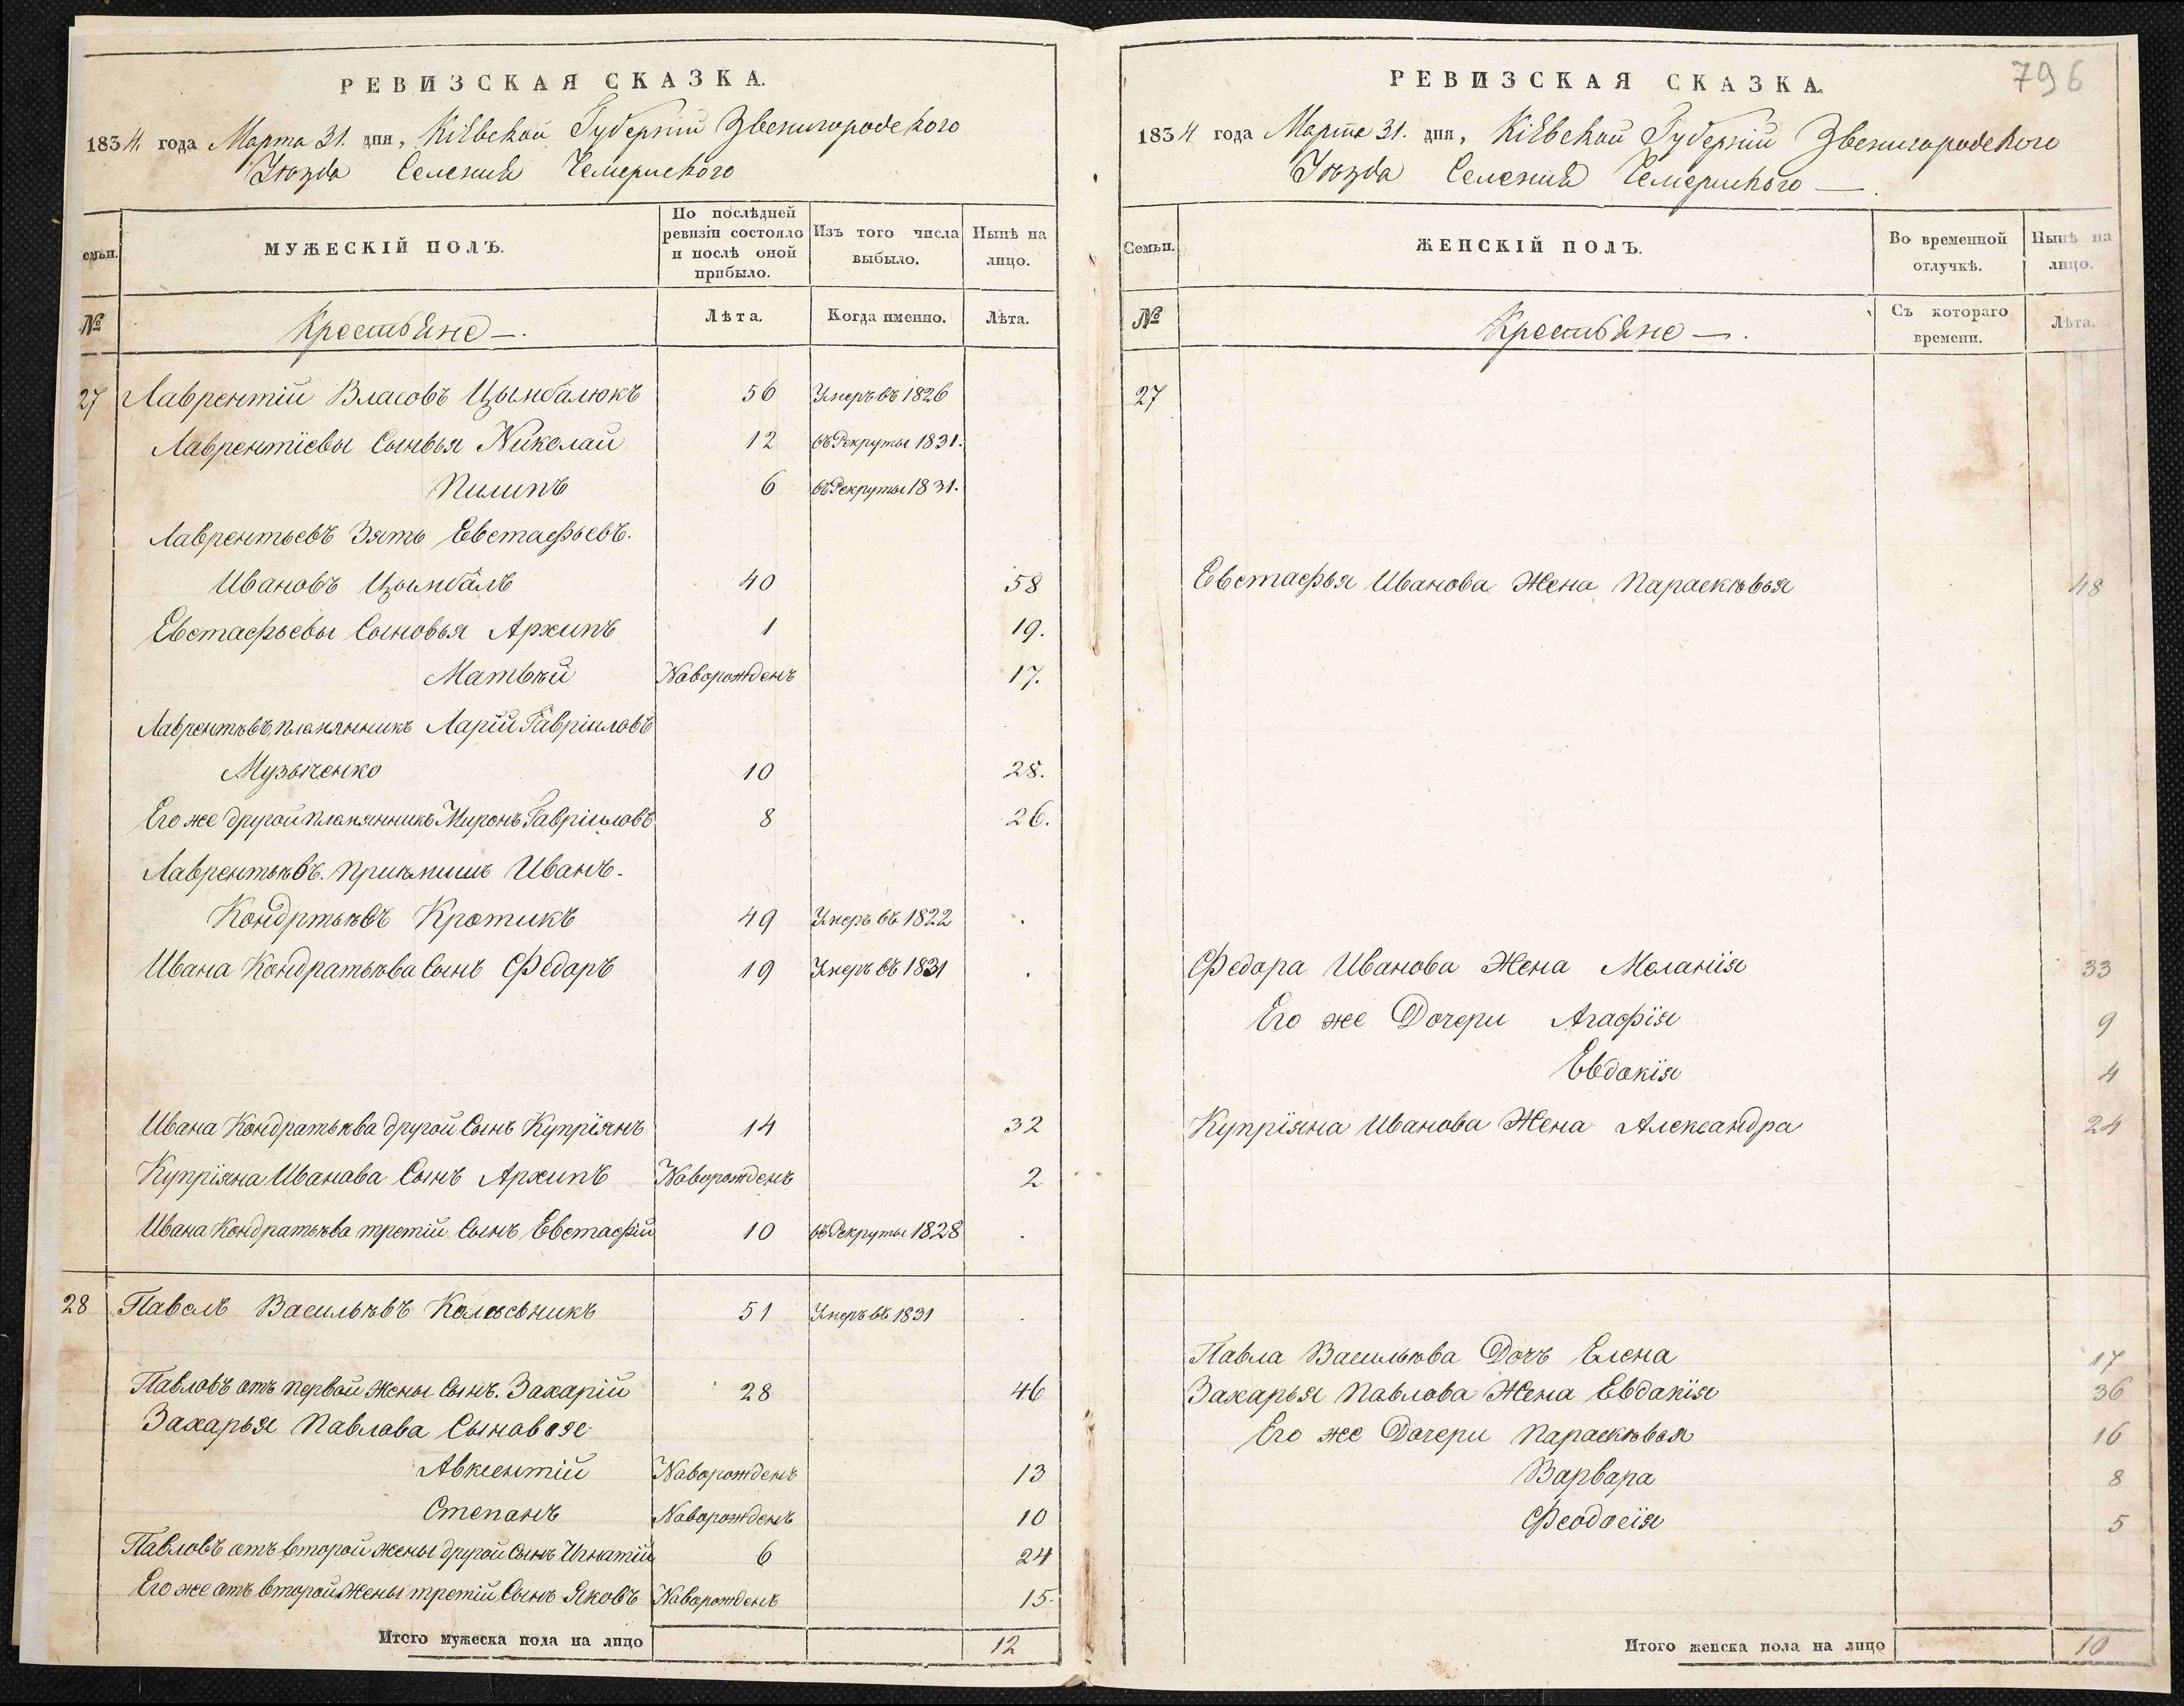 РЕВИЗСКАЯ СКАЗКА.
1834 года Марта 31. дня, Кіевской Губерніи Звенигородского
Уѣзда Селенія Чемериского
Семьи.
МУЖЕСКІЙ ПОЛЪ.
По послѣдней ревизіи состояло и послѣ оной прибыло.
Изъ того числа выбыло.
Нынѣ на лицо.
№
Крестьяне —.
Лѣта.
Когда именно.
Лѣта.
27 Лаврентій Власовъ Цымбалюкъ 56 Умеръ въ 1826
Лаврентіевы Сыновья Николай 12 въ Рекруты 1831.
Пилипъ 6 въ Рекруты 1831.
Лаврентьевъ Зять Евстафьевъ.
Ивановъ Цымбалъ 40 58
Евстафьевы Сыновья Архипъ 1 19.
МатвѣйНоворожденъ 17.
Лаврентѣвъ племянникъ Ларій Гавріиловъ
Музыченко 10 28.
Его же другой племянникъ Миронъ Гавріиловъ 8 26.
Лаврентьѣвъ. Приимышъ Иванъ-
Кондртьѣвъ Кротикъ 49 Умеръ въ 1822
Ивана Кондратьѣва Сынъ Федаръ 19 Умеръ въ 1831
Ивана Кондратьѣва другой Сынъ Купріянъ 14 32
Купріяна Иванава Сынъ Архипъ Новорожденъ 2
Ивана Кондратьѣва третій Сынъ Евстафій 10 въ Рекруты 1828
28 Павелъ Васильѣвъ Колесьникъ 51 Умеръ въ 1831
Павловъ отъ первой жены Сынъ. Захарій 28 46
Захарья Павлова Сыновья
Авксентій Новорожденъ 13
Степанъ Новорожденъ 10
Павловъ отъ второй жены другой Сынъ Игнатій 6 24
Его же отъ второй жены третій Сынъ Яковъ Новорожденъ 15.
Итого мужеска пола на лицо 12
796
РЕВИЗСКАЯ СКАЗКА.
1834 года Марта 31. дня, Кіевской Губерніи Звенигородского
Уѣзда Селенія Чемериского —.
Семьи.
ЖЕНСКІЙ ПОЛЪ.
Во временной отлучкѣ.
Нынѣ на лицо.
№
Крестьяне —.
Съ котораго времени.
Лѣта.
27
Евстафья Иванова Жена Параскѣвья 48
Федора Иванова Жена Меланія 33
Его же Дочери Агафія 9
Евдокія 4
Купріяна Иванова Жена Александра 24
Павла Васильѣва Дочъ Елена 17
Захарья Павлова Жена Евдакія 36
Его же Дочери Параскѣвья 16
Варвара 8
Феодосія 5
Итого женска пола на лицо 10